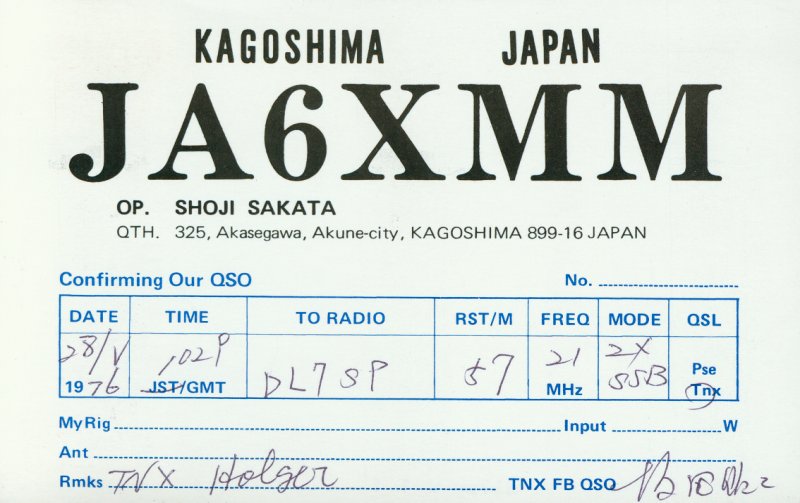 KAGOSHIMA JAPAN
JA6XMM
OP. SHOJI SAKATA
QTH. 325, Akasegawa, Akune-city, KAGOSHIMA 899-16 JAPAN
Confirming Our QSO No.
DATE TIME TO RADIO RST/M FREQ MODE QSL
28/V DL7SP 57 21 2X Pse
1976 JST/GMT MHz SSB Tnx
My Rig Input W
Ant
Rmks TNX Holger TNX FB QSO